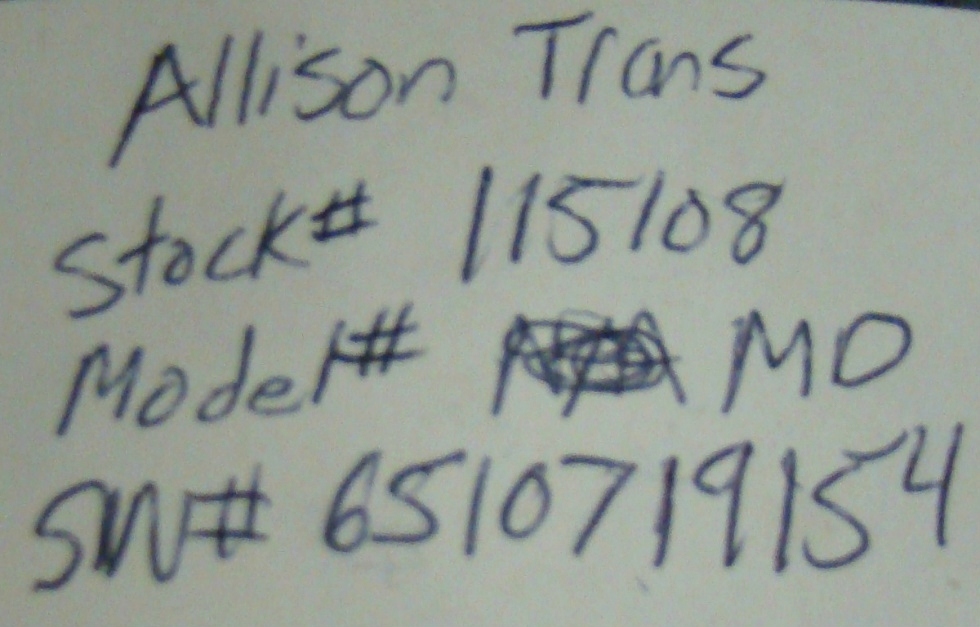 Allison Trans
Stock# 115108
Model# MD
SN# 6510719154